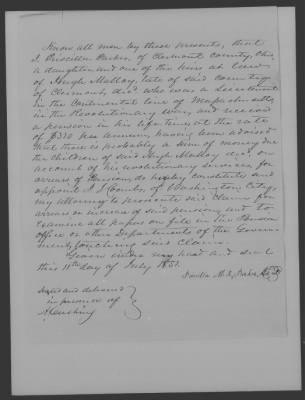 Know all men by these presents, that
I, Priscilla Parker, of Clermont County, Ohio
a daughter and one of the heirs at law
of Hugh Malloy, late of said County
of Clermont, decd. who was a Lieutenant
in the Continental line of Massachusetts
in the Revolutionary War, and received
a pension in his life time at the rate
of $320 per annum, having been advised
that there is probably a sum of money due
the children of said Hugh Mallay decd. on
account of his revolutionary services for
arrears of Pension, do hereby constitute and
appoint J. J. Coombs, of Washington City,
my attorney to prosecute said claim for
arrears or increase of said pension, and to
examine all papers on file in the Pension
office or other Departments of the Govern-
ment, touching said claim.
Given under my hand and seal
this 11th day of July 1851.
Parker
Signed and delivered
in presence of
Cushing